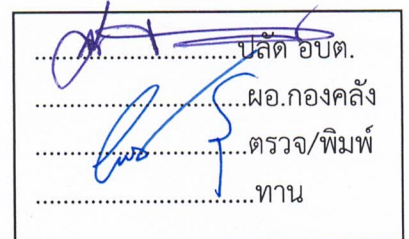 ....................................ปลัด อบต.
....................................ผอ.กองคลัง
....................................ตรวจ/พิมพ์
....................................ทาน